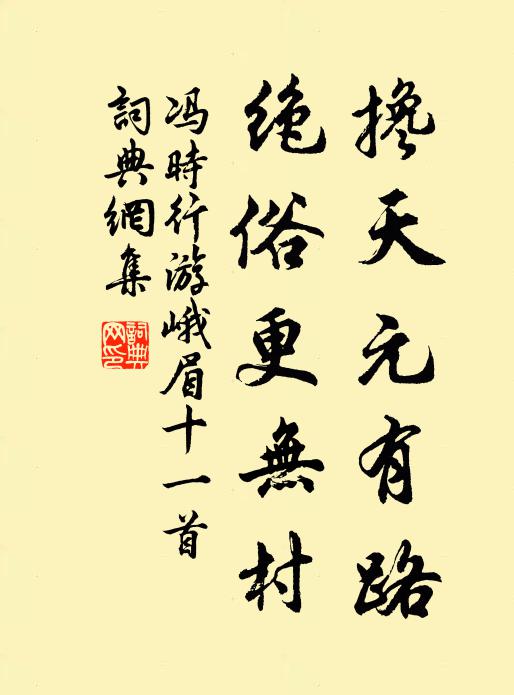 搀天元有路
绝俗更無村
冯時行游峨眉十一首
詞典網集
詞典网印